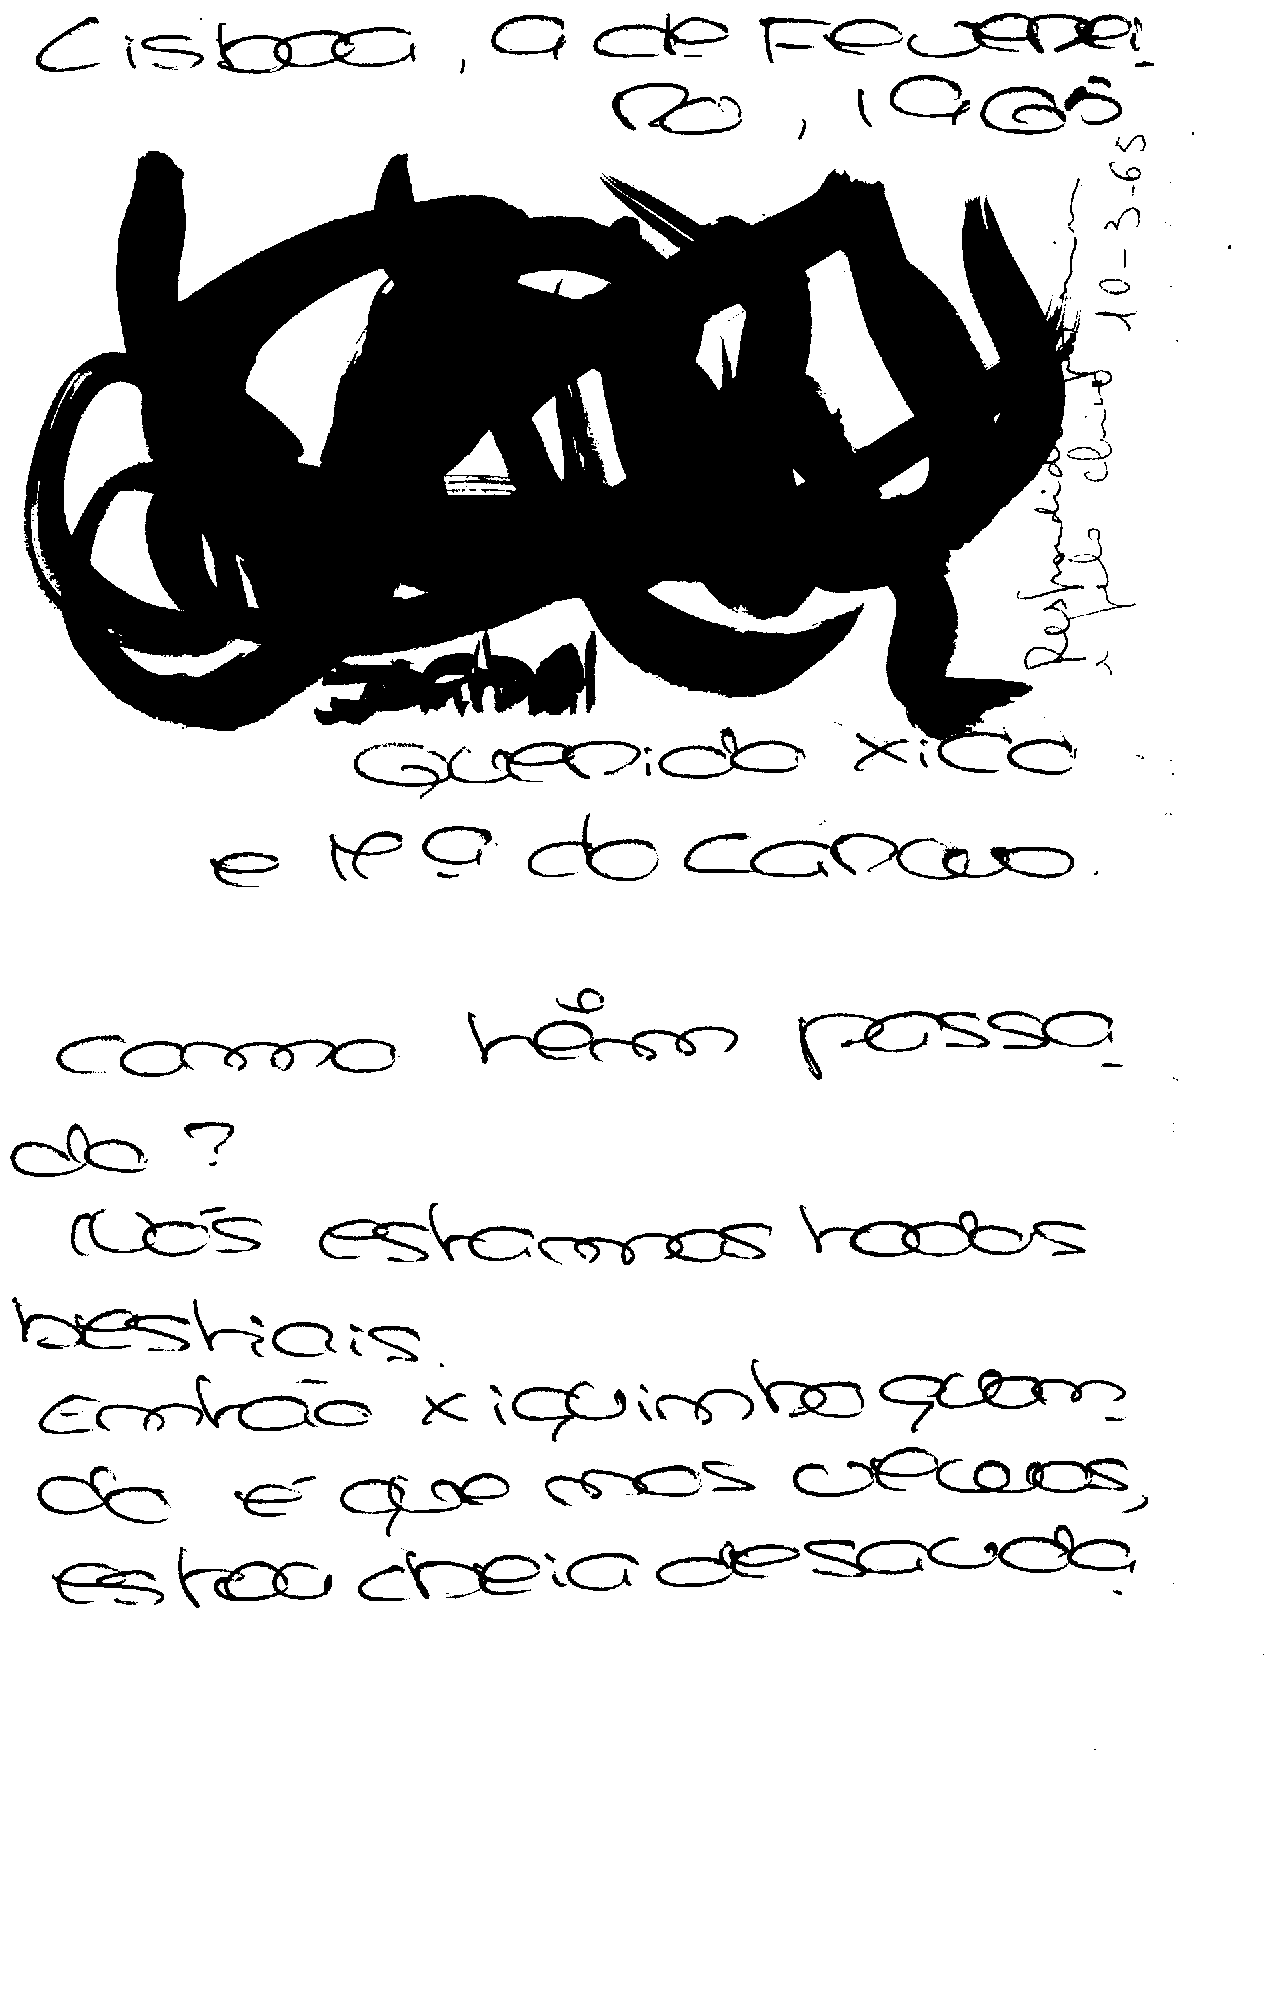 Lisboa, 9 de Feverei-
ro, 1965
10-3-65
Isabel
Querido Xico
e M.ª do Carmo.
Como têm passa-
do?
Nós estamos todos
bestiais.
Então xiquinho quan-
do é que nos vemos,
estou cheia de sauda-